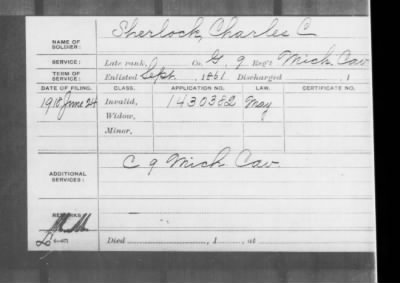 Sherlock, Charles C
NAME OF SOLDIER:
SERVICE: Late rank, Co. G, 9 Reg't Mich. Cav
TERM OF SERVICE: Enlisted Sept. , 1861 Discharged , 1
DATE OF FILING. CLASS. APPLICATION NO. LAW. CERTIFICATE NO.
1918 June 24 Invalid, 1430382 May
Widow,
Minor,
C 9 Mich Cav
ADDITIONAL SERVICES:
REMARKS:
Died , 1 , at